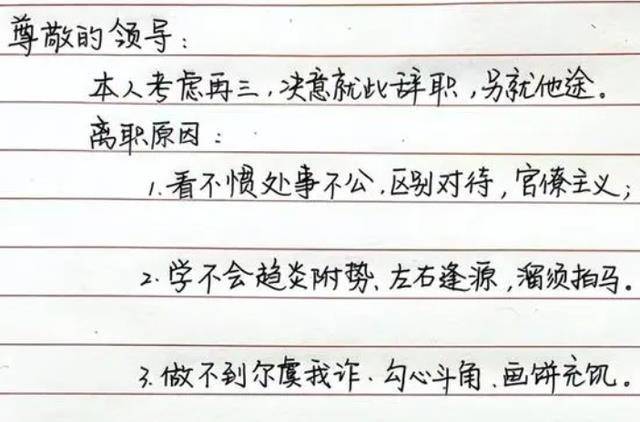 尊敬的领导：
本人考虑再三，决意就此辞职，另就他途。
离职原因：
1.看不惯处事不公、区别对待，官僚主义；
2.学不会趋炎附势、左右逢源，溜须拍马。
3.做不到尔虞我诈、勾心斗角、画饼充饥。